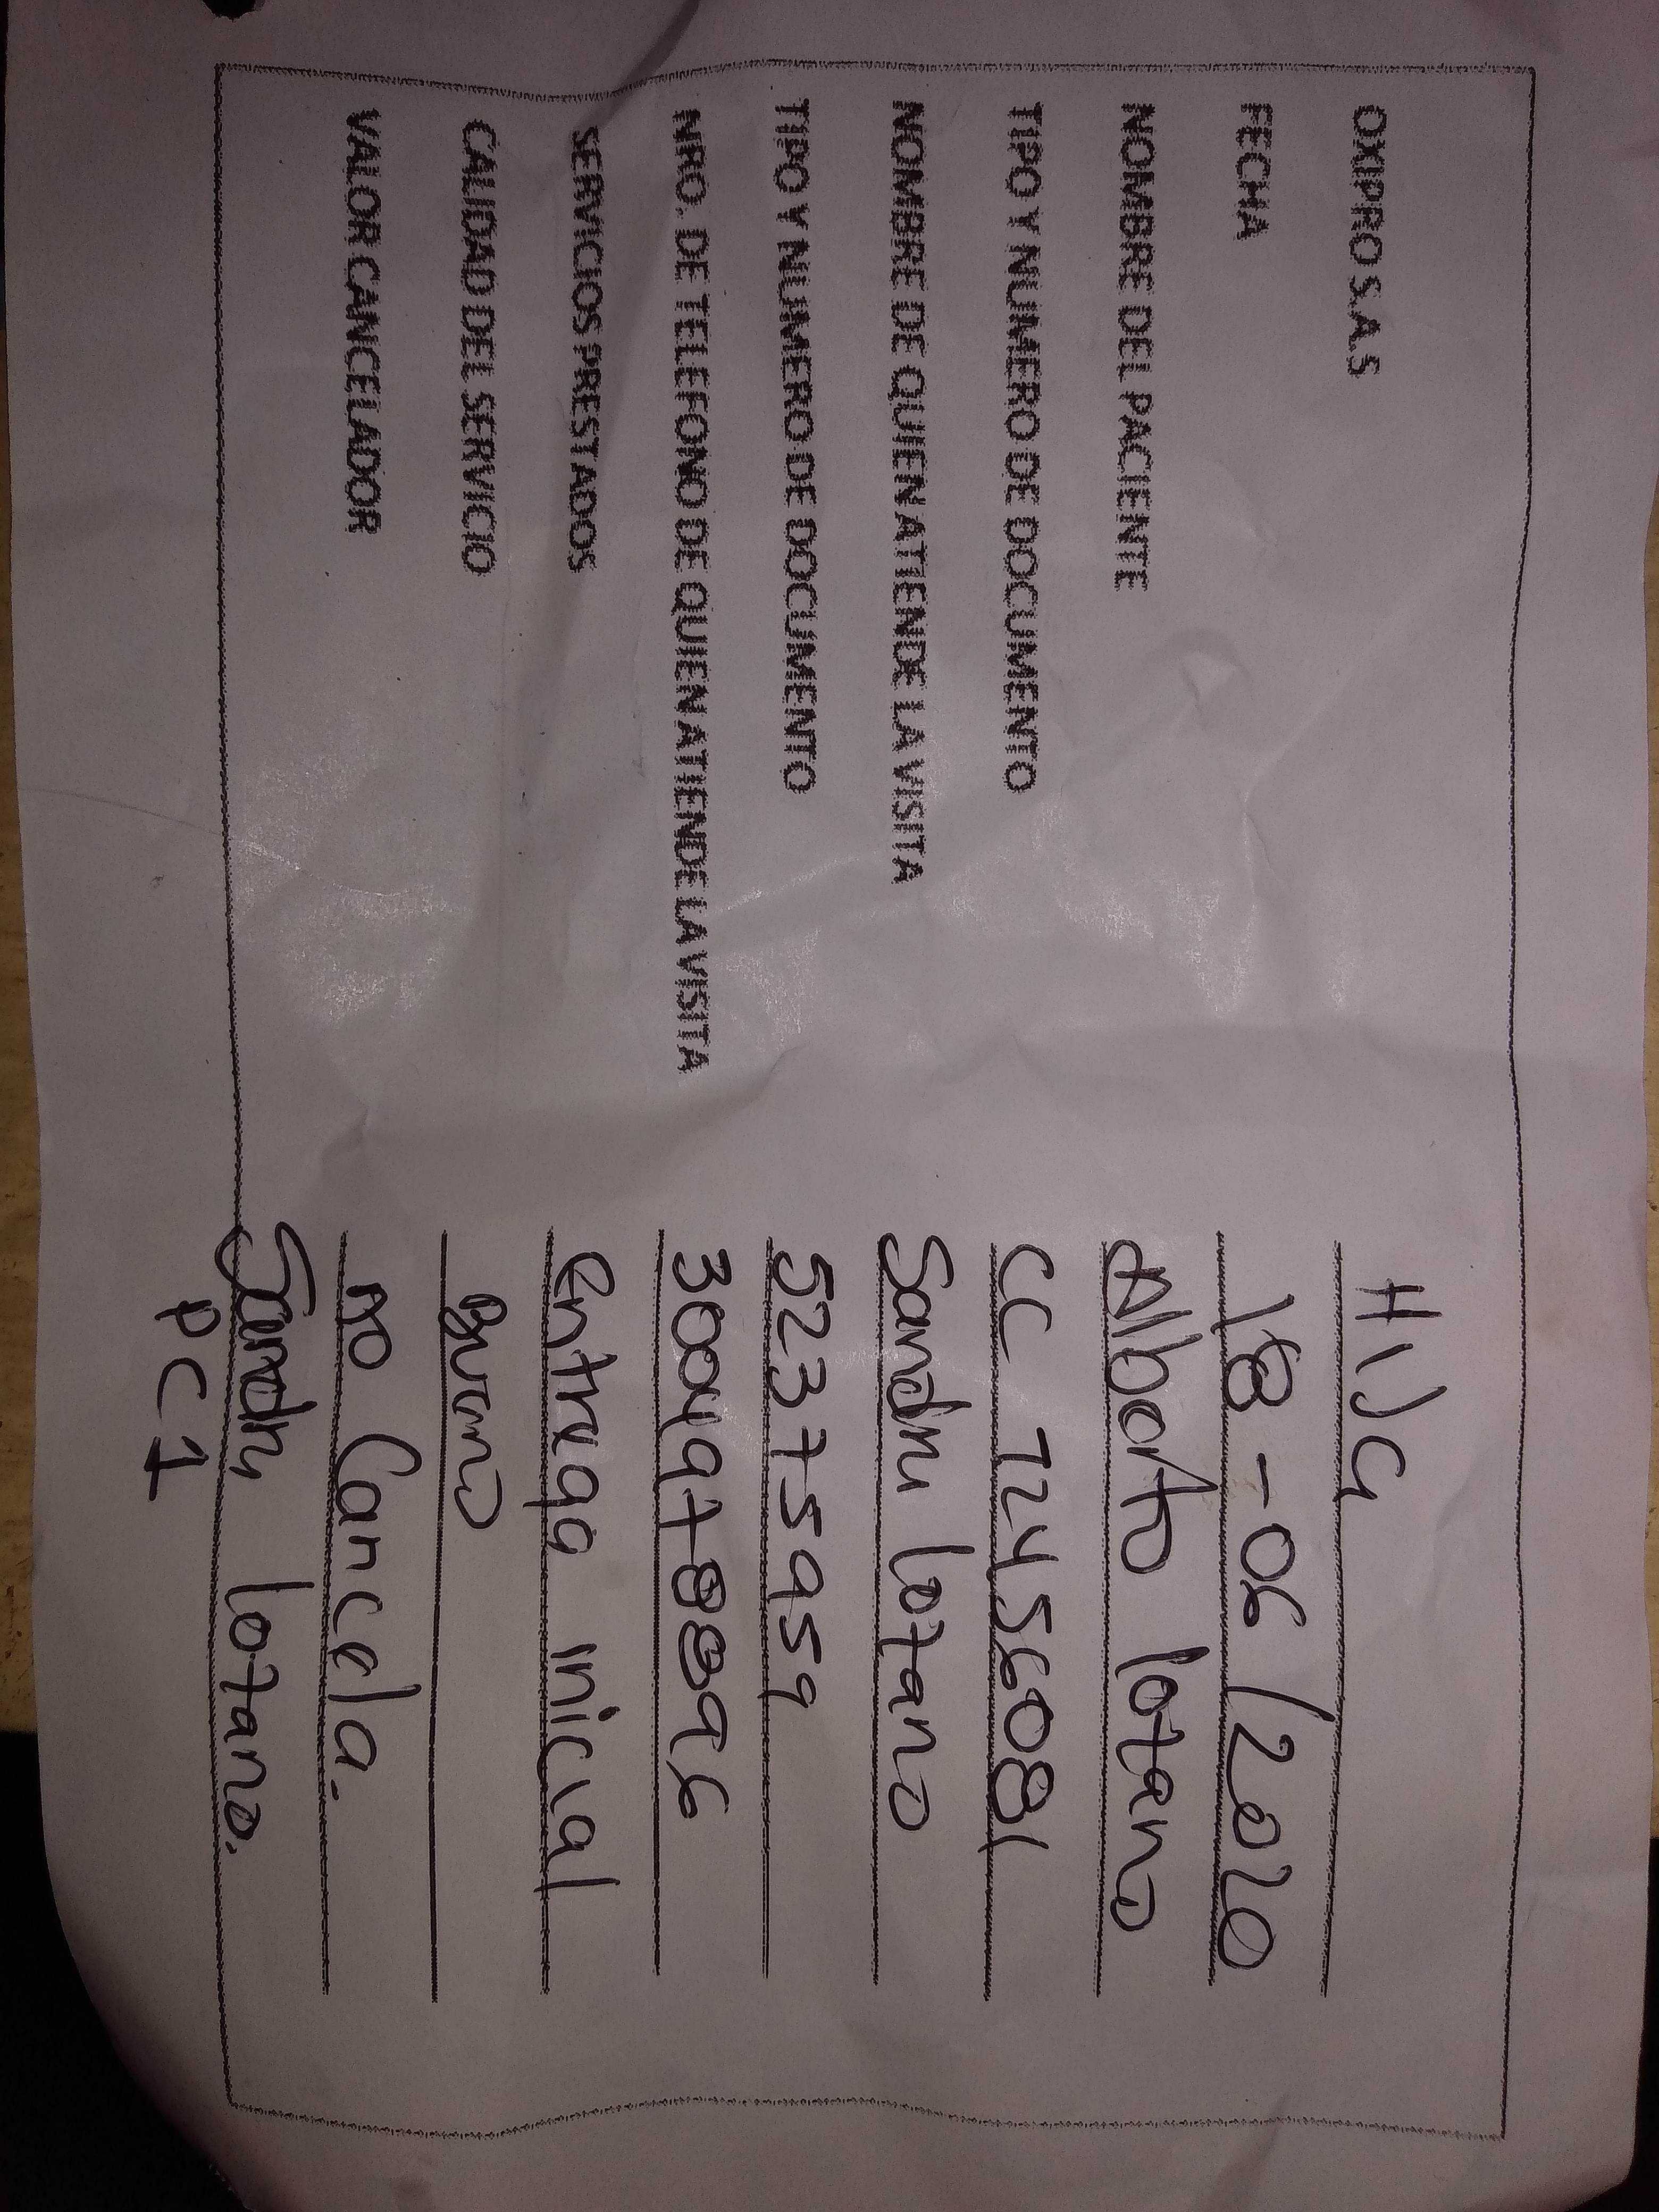 OXIPRO S.A.S Hija
FECHA 18-06/2020
NOMBRE DEL PACIENTE Alberto lozano
TIPO Y NUMERO DE DOCUMENTO CC 72456081
NOMBRE DE QUIEN ATIENDE LA VISITA Sandra lozano
TIPO Y NUMERO DE DOCUMENTO 52375959
NRO. DE TELEFONO DE QUIEN ATIENDE LA VISITA 3004978896
SERVICIOS PRESTADOS entrega inicial
CALIDAD DEL SERVICIO Bueno
VALOR CANCELADOR no Cancela.
Sandra lozano.
PC1